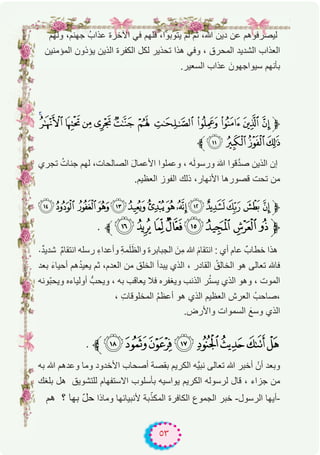 ليصرفوهم عن دين الله، ثم لم يتوبوا، فلهم في الآخرة عذابُ جهنم، ولهم
العذاب الشديد المحرق ، وفي هذا تحذير لكل الكفرة الذين يؤذون المؤمنين
بأنهم سيواجهون عذاب السعير.
﴿ إِنَّ ٱلَّذِينَ ءَامَنُوا۟ وَعَمِلُوا۟ ٱلصَّـٰلِحَـٰتِ لَهُمْ جَنَّـٰتٌ تَجْرِى مِن تَحْتِهَا ٱلْأَنْهَـٰرُ
ذَٰلِكَ ٱلْفَوْزُ ٱلْكَبِيرُ ١١ ﴾
إن الذين صدَّقوا الله ورسولَه ، وعملوا الأعمال الصالحات، لهم جناتٌ تجري
من تحت قصورها الأنهار، ذلك الفوز العظيم.
﴿ إِنَّ بَطْشَ رَبِّكَ لَشَدِيدٌ ١٢ إِنَّهُۥ هُوَ يُبْدِئُ وَيُعِيدُ ١٣ وَهُوَ ٱلْغَفُورُ ٱلْوَدُودُ ١٤
ذُو ٱلْعَرْشِ ٱلْمَجِيدُ ١٥ فَعَّالٌ لِّمَا يُرِيدُ ١٦ ﴾
هذا خطابٌ عام أي : انتقامُ الله مِنَ الجبابرة والظَّلَمةِ وأعداءِ رسله انتقامٌ شديدٌ.
فالله تعالى هو الخالقُ القادر ، الذي يبدأ الخلق من العدم، ثم يعيدُهم أحياءً بعد
الموت ، وهو الذي يسترُ الذنب ويغفره فلا يعاقب به ، ويحبُّ أولياءه ويحبّونه
،صاحبُ العرش العظيم الذي هو أعظمُ المخلوقاتِ ،
الذي وسعَ السموات والأرض.
﴿ هَلْ أَتَىٰكَ حَدِيثُ ٱلْجُنُودِ ١٧ فِرْعَوْنَ وَثَمُودَ ١٨ ﴾ .
وبعد أنْ أخبر الله تعالى نبيَّه الكريم بقصة أصحاب الأخدود وما وعدهم الله به
من جزاء ، قال لرسوله الكريم يواسيه بأسلوب الاستفهام للتشويق هل بلغك
-أيها الرسول- خبر الجموع الكافرة المكذّبة لأنبيائها وماذا حلّ بها ؟ هم
٥٣